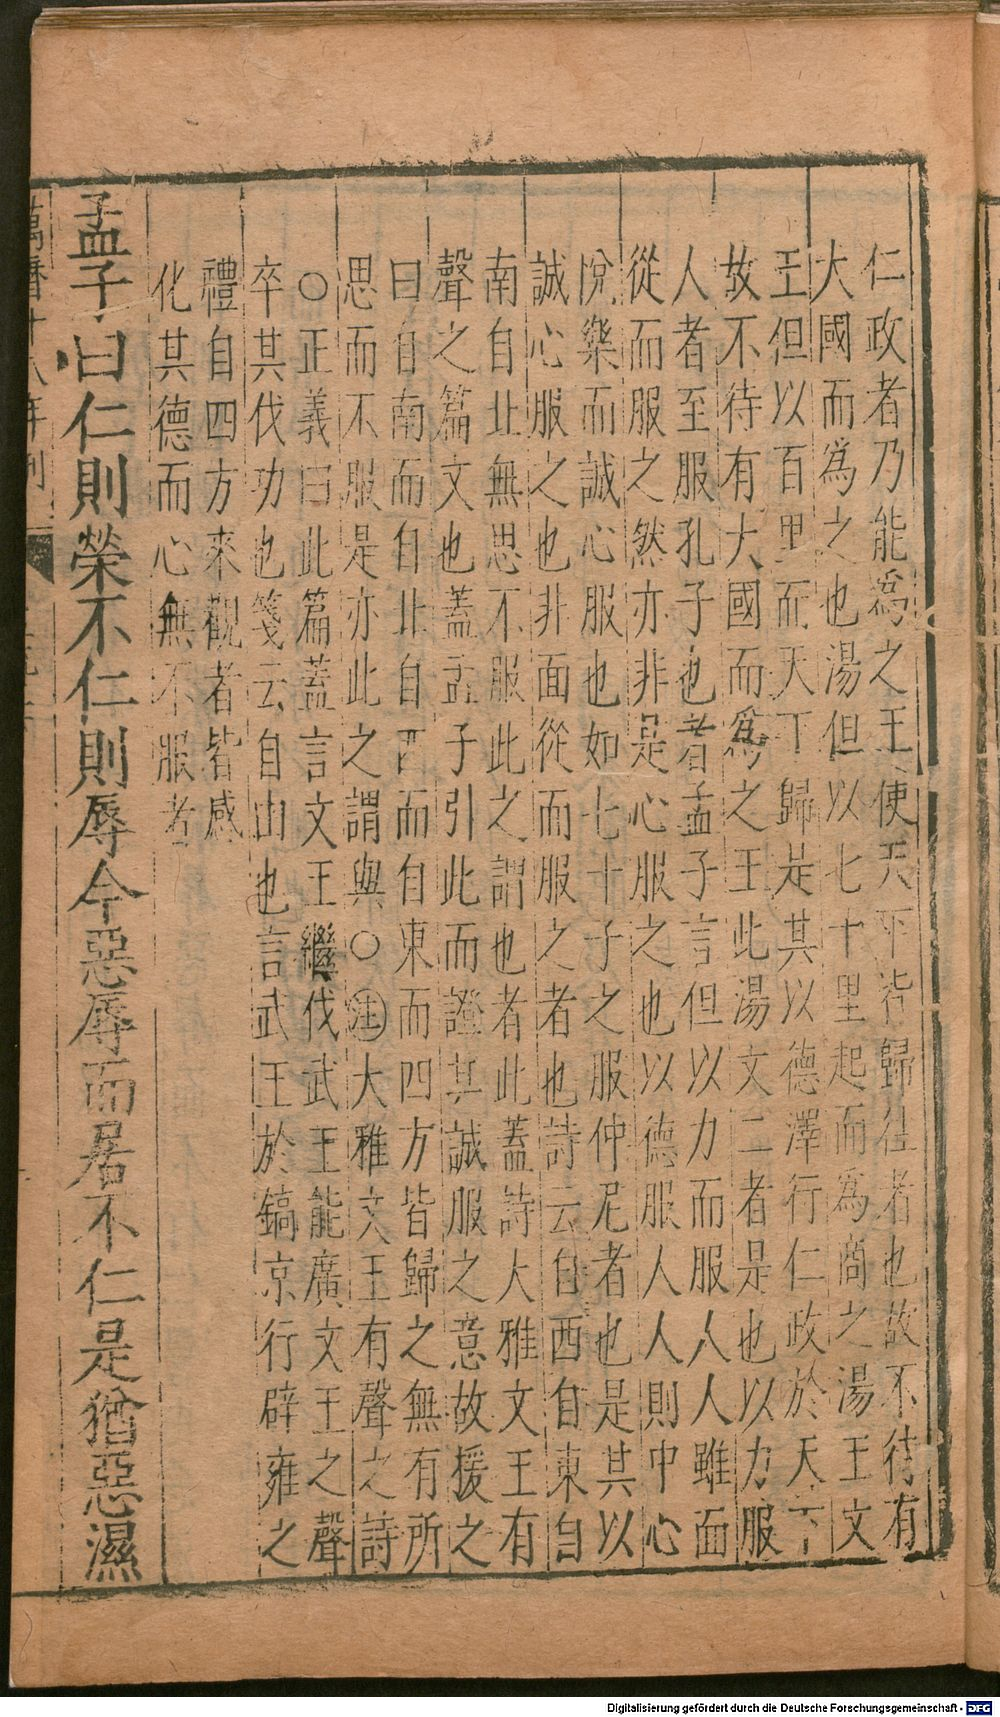 仁政者乃能爲之王使天下皆歸往者也故不待有
大國而爲之也湯但以七十里起而爲商之湯王文
王但以百里而天下歸是其以德澤行仁政於天下
故不待有大國而爲之王此湯文二者是也以力服
人者至服孔子也者孟子言但以力而服人人雖面
從而服之然亦非是心服之也以德服人人則中心
悅樂而誠心服也如七十子之服仲尼者也是其以
誠心服之也非面從而服之者也詩云自西自東自
南自北無思不服此之謂也者此蓋詩大雅文王有
聲之篇文也蓋孟子引此而證其誠服之意故援之
曰自南而自北自西而自東而四方皆歸之無有所
思而不服是亦此之謂與○注大雅文王有聲之詩
○正義曰此篇蓋言文王繼伐武王能廣文王之聲
卒其伐功也箋云自由也言武王於鎬京行辟雍之
禮自四方來觀者皆感
化其德而心無不服者
孟子曰仁則榮不仁則辱今惡辱而居不仁是猶惡濕
萬曆十八年刊
Digitalisierung gefördert durch die Deutsche Forschungsgemeinschaft - DFG